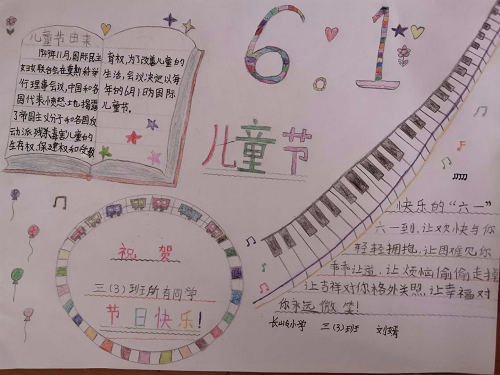 儿童节由来
1949年11月,国际民主
妇女联合会在莫斯科举
行理事会议,中国和各
国代表愤怒地揭露
了帝国主义分子和各国反
动派残杀毒害儿童的
生存权、保健权和受教
育权,为了改善儿童的
生活,会议决定以每
年的6月1日为国际
儿童节。
6.1
儿童节
祝贺
三(3)班所有同学
节日快乐!
快乐的“六一”
六一到,让欢快与你
轻轻拥抱,让困难见你
节节让道,让烦恼偷偷走掉
让吉祥对你格外关照,让幸福对
你永远微笑!
小学 三(3)班